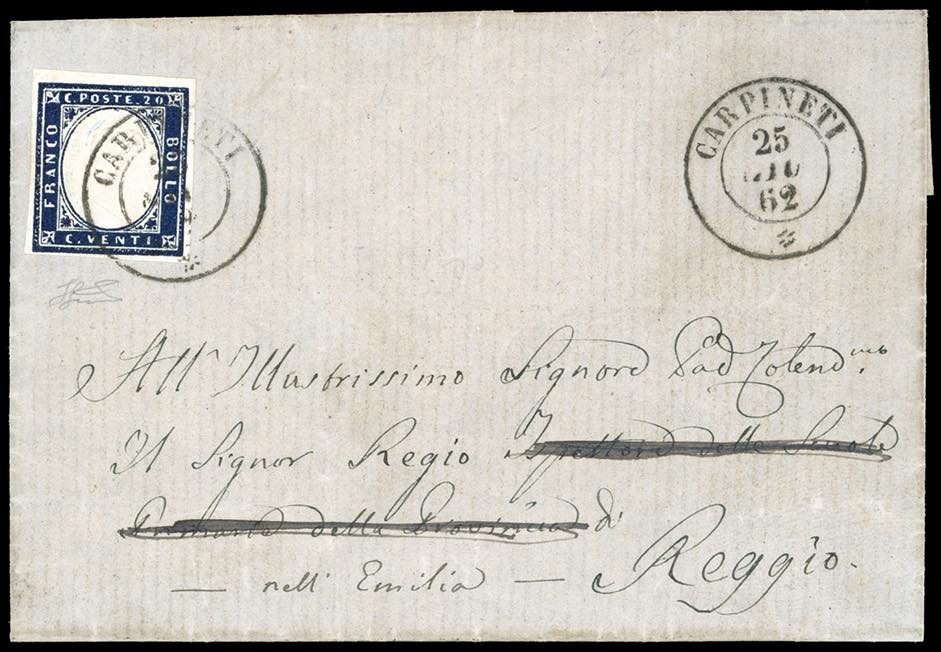 C. POSTE. 20
FRANCO
BOLLO
C. VENTI
CARPINETI
CARPINETI
25
62
All' Illustrissimo Signore Pad Colend.mo
Il Signor Regio Ispettore delle Scuole
Primarie della Provincia di
— nell' Emilia — Reggio.